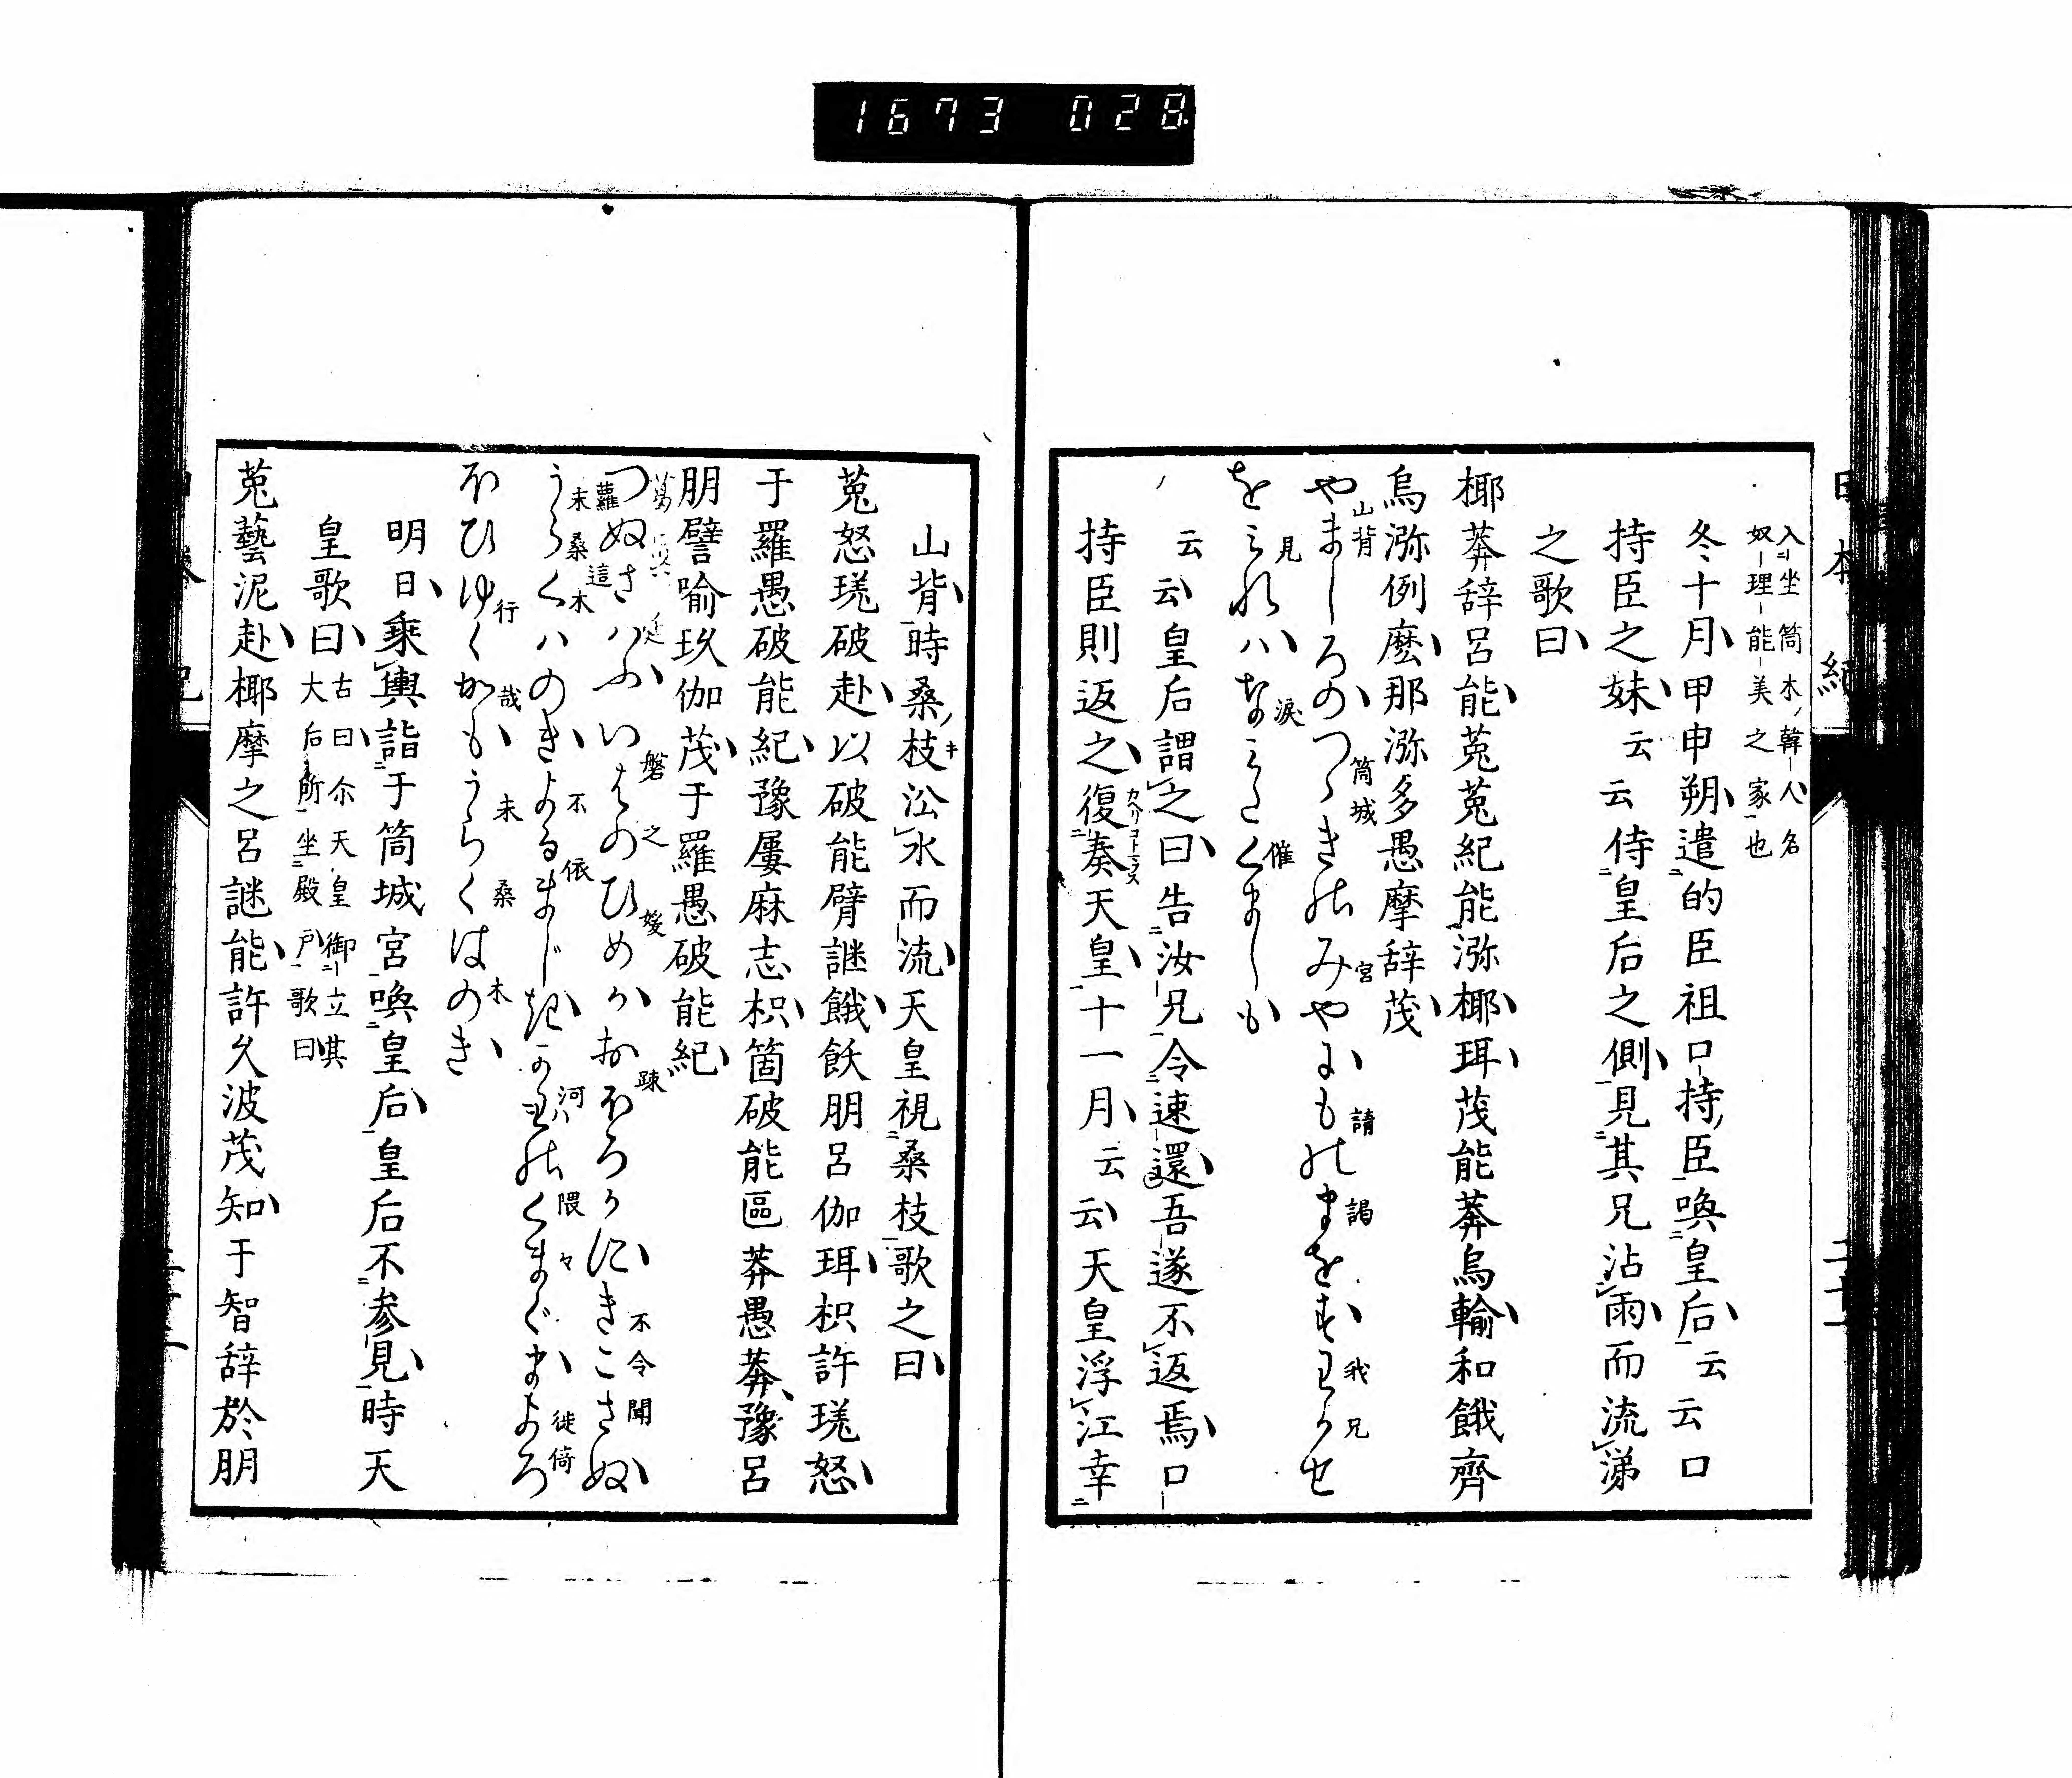 1673 028
日本紀
入坐筒木韓人名
奴理能美之家也
冬十月甲申朔遣的臣祖口持臣喚皇后云云口
持臣之妹云云侍皇后之側見其兄沾雨而流涕
之歌曰
椰莽辞呂能菟菟紀能瀰椰珥茂能莽烏輸和餓齊
烏瀰例麼那瀰多愚摩辞茂
やましろのつゝきのみやにものまをすわかせ
山背 筒城 宮 請 謁 我兄
をみれハなみたくましも
見 淚 催
云云皇后謂之曰告汝兄令速還吾遂不返焉口
持臣則返之復奏天皇十一月云云天皇浮江幸
カヘリコトマウス
山背時桑枝沿水而流天皇視桑枝歌之曰
菟怒瑳破赴以破能臂謎餓飫朋呂伽珥枳許瑳怒
于羅愚破能紀豫屢麻志枳箇破能區莽愚莽豫呂
朋譬喻玖伽茂于羅愚破能紀
つぬさハふいはのひめかおほろかにきこさぬ
蘿 這 磐 之 媛 踈 不令聞
うらくハのきよるましきかはのくまぐまよろ
末桑木 不依 河 隈々 徙倚
ほひゆくかもうらくはのき
行 哉 末 桑 木
明日乘輿詣于筒城宮喚皇后皇后不参見時天
皇歌曰
古曰尓天皇御立其
大后所坐殿戸歌曰
菟藝泥赴椰摩之呂謎能許久波茂知于智辞於朋